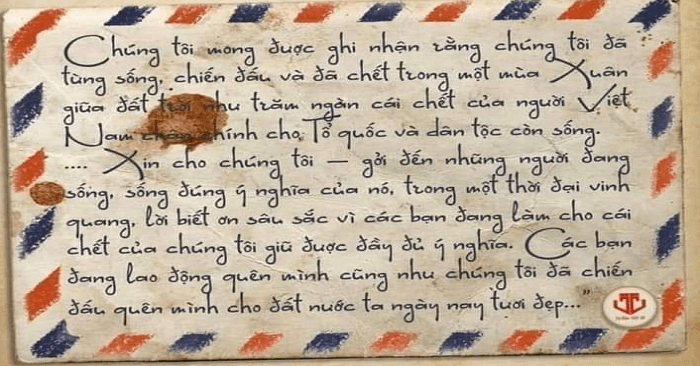 Chúng tôi mong được ghi nhận rằng chúng tôi đã
từng sống, chiến đấu và đã chết trong một mùa Xuân
giữa đất trời như trăm ngàn cái chết của người Việt
Nam chân chính cho Tổ quốc và dân tộc còn sống.
.... Xin cho chúng tôi — gởi đến những người đang
sống, sống đúng ý nghĩa của nó, trong một thời đại vinh
quang, lời biết ơn sâu sắc vì các bạn đang làm cho cái
chết của chúng tôi giữ được đầy đủ ý nghĩa. Các bạn
đang lao động quên mình cũng như chúng tôi đã chiến
đấu quên mình cho đất nước ta ngày nay tươi đẹp..."